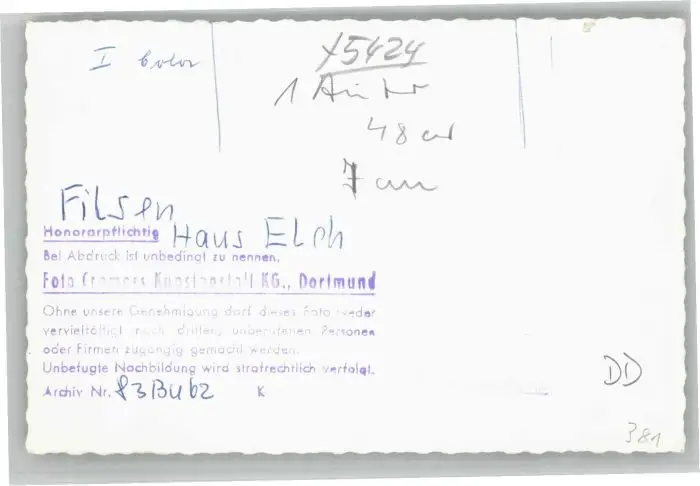 I Color
X5424
1
48 cm
7 cm
Filsen
Haus Elch
Honorarpflichtig
Bei Abdruck ist unbedingt zu nennen.
Foto Cramers Kunstanstalt KG., Dortmund
Ohne unsere Genehmigung darf dieses Foto weder
vervielfältigt noch dritten, unberufenen Personen
oder Firmen zugängig gemacht werden.
Unbefugte Nachbildung wird strafrechtlich verfolgt.
Archiv Nr. 83BU62 K
DD
381